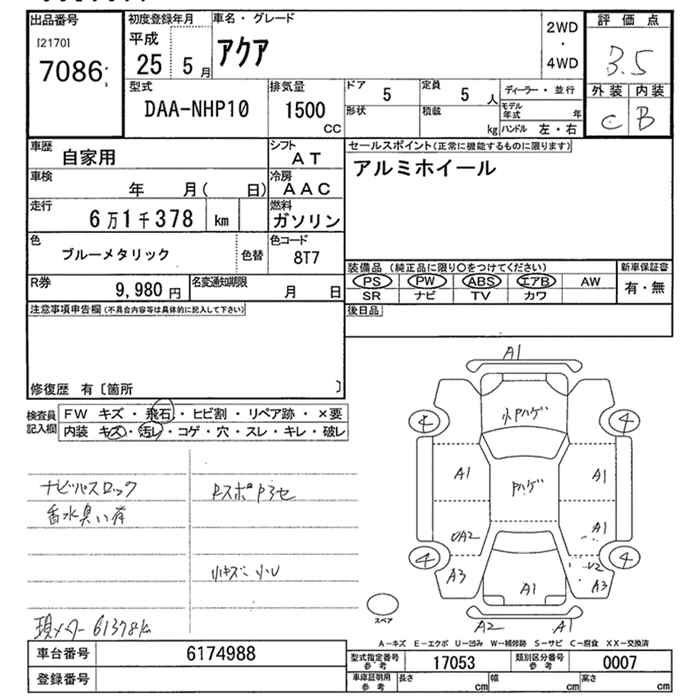 出品番号 初度登録年月 車名・グレード 2WD ・ 4WD 評価点
[2170] 平成
7086 25 5月 アクア 3.5
型式 排気量 ドア 5 定員 5人 ディーラー・並行 外装 内装
DAA-NHP10 1500 CC 形状 積載 kg モデル年式 年 C B
ハンドル 左・右
車歴 自家用 シフト AT セールスポイント(正常に機能するものに限ります)
車検 年 月( 日) 冷房 AAC アルミホイール
走行 6万1千378 km 燃料 ガソリン
色 ブルーメタリック 色替 色コード 8T7
装備品 (純正品に限り○をつけてください) 新車保証書
R券 9,980円 名変通知期限 月 日 PS PW ABS エアB AW 有・無
SR ナビ TV カワ
注意事項申告欄(不具合内容等は具体的に記入して下さい) 後日品
修復歴 有〔箇所 〕
検査員記入欄 FW キズ・飛石・ヒビ割・リペア跡・×要
内装 キズ・汚レ・コゲ・穴・スレ・キレ・破レ
A1
小Pハゲ
4 4
A1 Pハゲ A1
ナビパスロック
香水臭い有
A1
UA2 U2
4 4
A3 A1 A3
小キズ 小U
スペア A2 A1
現メーター 61378km
A-キズ E-エクボ U-凹み W-補修跡 S-サビ C-腐食 XX-交換済
車台番号 6174988 型式指定番号 参考 17053 類別区分番号 参考 0007
登録番号 車庫証明用 参考 長さ cm 幅 cm 高さ cm